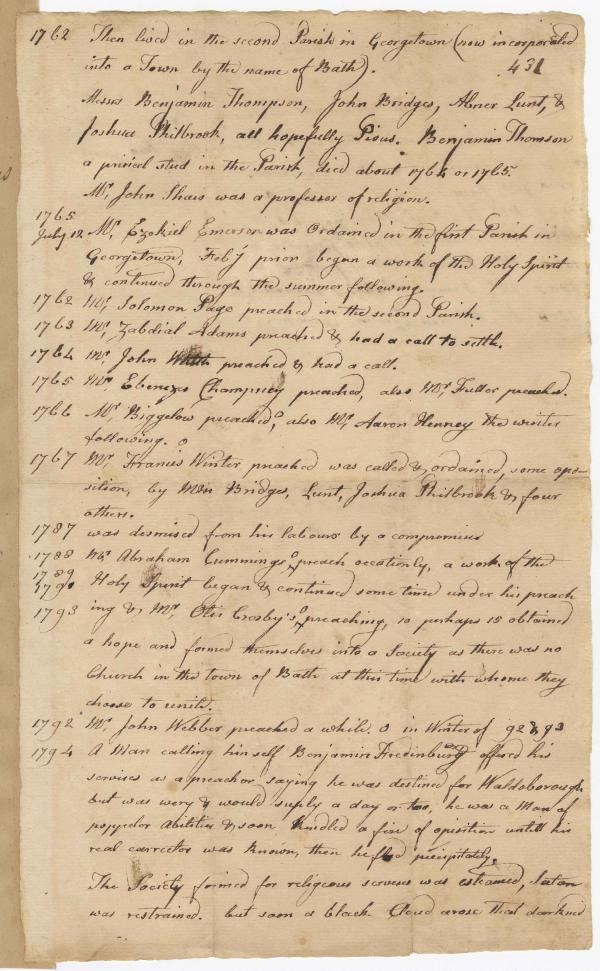 1762 Then lived in the second Parish in Georgetown (now incorporated
into a Town by the name of Bath). 431
Messrs Benjamin Thompson, John Bridges, Abner Lunt, &
Joshua Philbrook, all hopefully Pious. Benjamin Thomson
a stud in the Parish, died about 1764 or 1765.
Mr. John Shaw was a professor of religion.
1765
July 12 Mr. Ezekiel Emerson was Ordained in the first Parish in
Georgetown, Feby prior began a work of the Holy Spirit
& continued through the summer following.
1762 Mr. Solomon Page preached in the second Parish.
1763 Mr. Zabdial Adams preached & had a call to settle.
1764 Mr. John preached & had a call.
1765 Mr. Ebenezer Champney preached, also Mr. Fuller preached.
1766 Mr. Biggelow preached, also Mr. Aaron Henney the winter
following. o
1767 Mr. Francis Winter preached was called & ordained, some opo-
sition, by Bridges, Lunt, Joshua Philbrook & four
others.
1787 was desmised from his labours by a compromise
1788 Mr. Abraham Cummings preach occationly, a work of the
1789
1790 Holy Spirit began & continued some time under his preach
1793 ing & Mr. Otis Crosby's preaching, 10 perhaps 15 obtained
a hope and formed themselves into a Society as there was no
Church in the town of Bath at this time with whome they
choose to unite.
1792 Mr. John Webber preached a while. o in Winter of 92 & 93
1794 A Man calling himself Benjamin Fredinburg offered his
servises as a preachor saying he was destined for Waldsborough,
but was wery & would suply a day or too, he was a Man of
popyelor Abilities & soon kindled a fire of oposition untill his
real carrector was known, then he fled precipitately.
The Society formed for religeous serveses was esteamed, Satan
was restrained. but soon a black Cloud arose that darkned